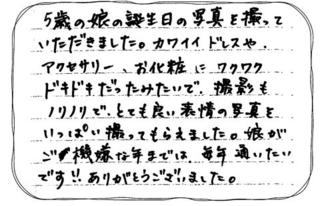 5歳の娘の誕生日の写真を撮って
いただきました。カワイイドレスや、
アクセサリー、お化粧にワクワク
ドキドキだったみたいで、撮影も
ノリノリで、とても良い表情の写真を
いっぱい撮ってもらえました。娘が
ご機嫌な年までは、毎年通いたい
です!!ありがとうございました。